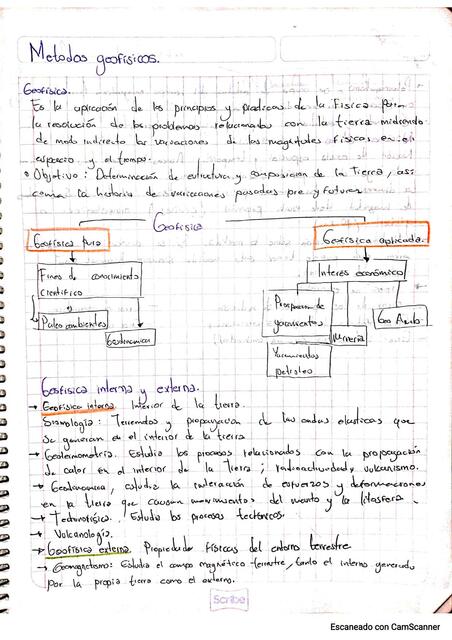 Metodos geofisicos.
Geofisica.
Es la aplicación de los principios y practicas de la Fisica para
la resolución de los problemas relacionados con la tierra midiendo
de modo indirecto las variaciones de las magnitudes fisicas en el
espacio y el tiempo.
Objetivo: Determinación de estructura y composicion de la Tierra, asi
como la historia de variaciones pasadas pre y futuras
Geofisica
Geofisica Pura
Geofisica aplicada.
Fines de conocimiento
Cientifico
Interés económico
Paleo ambientes
Geodinamica
Prospeccion de
yacimientos
Mineria
Geo
Yacimientos
petroleo
Geofisica interna y externa.
→ Geofisica interna. Interior de la tierra.
Sismologia: Terremotos y propagacion de las ondas elasticas que
se generan en el interior de la tierra
→ Geotermometria. Estudia los procesos relacionados con la propagación
de calor en el interior de la Tierra; radioactividad, vulcanismo.
→ Geodinamica, estudia la interacción de esfuerzos y deformaciones
en la tierra que causan movimientos del manto y la litosfera.
→ Tectonofisica. Estudia los procesos tectónicos.
→ Vulcanologia.
→ Geofisica externa. Propiedades físicas del entorno terrestre
→ Geomagnetismo: Estudia el campo magnético terrestre, tanto el interno generado
por la propia tierra como el externo.
Scribe
Escaneado con CamScanner